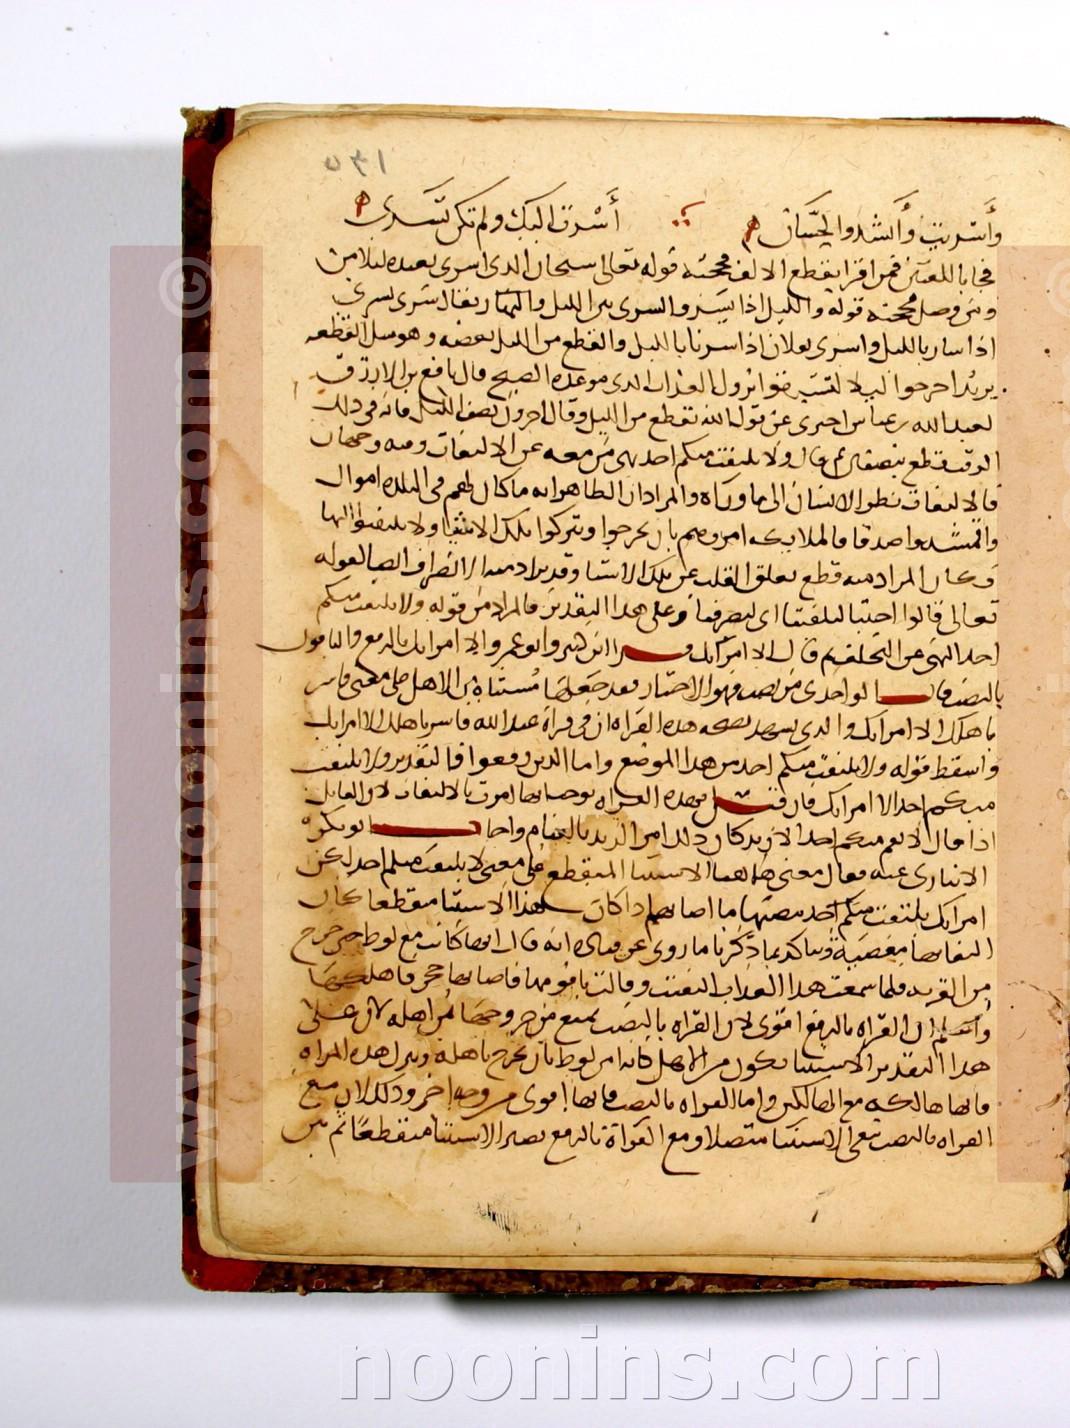 ١٣٥
وأسريت وأنشدوا لحسان أسرت إليك ولم تكن تسرى
فجا باللغتين فمن قرا بقطع الالف فحجته قوله تعالى سبحان الذى اسرى بعبده ليلا من
وصل فحجته قوله والليل اذا يسر والسرى سير الليل والنهار يقال سرى يسرى
اذا سار بالليل واسرى بفلان اذا سرنا بالليل والقطع من الليل بعضه وهو مثل القطعه
يريد اخرجوا ليلا لتستبقوا نزول العذاب الذى موعده الصبح قال نافع بن الازرق
لعبد الله بن عباس اخبرنى عن قول الله بقطع من الليل وقال اخرون نصف الليل فانه فى ذلك
الوقت قطع بنصفين ثم قال ولا يلتفت منكم احد نهى من معه عن الالتفات وفيه وجهان
فالالتفات نظر الانسان الى ما وراه والمراد ان الظاهر انه ما كان لهم فى البلده اموال
واقمشه واصدقا فالملايكه امروهم بان يخرجوا ويتركوا تلك الاشيا ولا يلتفتوا اليها
وكان المراد منه قطع تعلق القلب عن تلك الاشيا وقد يراد منه الانصراف ايضا لقوله
تعالى قالوا اجئتنا لتلفتنا اى لتصرفنا وعلى هذا التقدير فالمراد من قوله ولا يلتفت منكم
احد النهى عن التخلف ثم قال الا امراتك قرا ابن كثير وابو عمرو الا امراتك بالرفع والباقون
بالنصب قال الواحدى من نصب فهو الاختيار فقد جعلها مستثناة من الاهل على معنى فاسر
باهلك الا امراتك والذى يشهد بصحه هذه القراه ان فى قراة عبد الله فاسر باهلك الا امراتك
واسقط قوله ولا يلتفت منكم احد من هذا الموضع واما الذين رفعوا فالتقدير ولا يلتفت
منكم احد الا امراتك فان قيل فهذه القراه توجب انها امرت بالالتفات لان القايل
اذا قال لا يقم منكم احد الا زيد كان ذلك امرا لزيد بالقيام واجاب ابو بكر
الانبارى عنه فقال معنى الا ههنا الاستثنا المنقطع على معنى لا يلتفت منكم احد لكن
امراتك تلتفت منكم احد فيصيبها ما اصابهم واذا كان هذا الاستثنا منقطعا كان
التفاتها معصية ويتاكد بما ذكرنا ما روى عن قتاده انه قال انها كانت مع لوط حين خرج
من القريه فلما سمعت هذا العذاب التفتت وقالت يا قوماه فاصابها حجر فاهلكها
واعلم ان القراه بالرفع اقوى لان القراه بالنصب تمنع من خروجها من اهله لان على
هذا التقدير الاستثنا يكون من الاهل كانه امر لوط بان يخرج باهله ويترك هذه المراه
فانها هالكه مع الهالكين واما القراه بالنصب فانها اقوى من وجه اخر وذلك لان مع
القراه بالنصب يبقى الاستثنا متصلا ومع القراة بالرفع يصير الاستثنا منقطعا ثم بين
© www.noonins.com
noonins.com